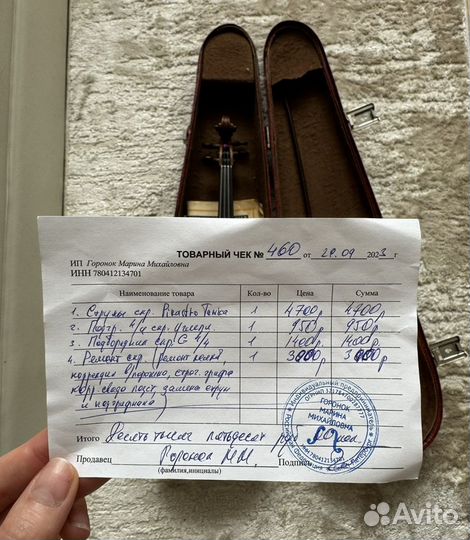 ТОВАРНЫЙ ЧЕК № 460 от 29.09 2023 г.
ИП Горонок Марина Михайловна
ИНН 780412134701
Наименование товара Кол-во Цена Сумма
1. Струны скр. Pirastro Tonica 1 4700р 4700р
2. 4/4 скр. 1 950р 950р
3. Подбородник скр. 4/4 1 1400р 1400р
4. Ремонт скр. (ремонт 1 3000р 3000р
коррекция строг. грифа
корр. свода подст, замена струн
и подгрифника)
ГОРОНОК
МАРИНА
МИХАЙЛОВНА
Итого Десять тысяч пятьдесят руб коп.
Продавец Горонок М.М. Подпись
(фамилия,инициалы)
Avito